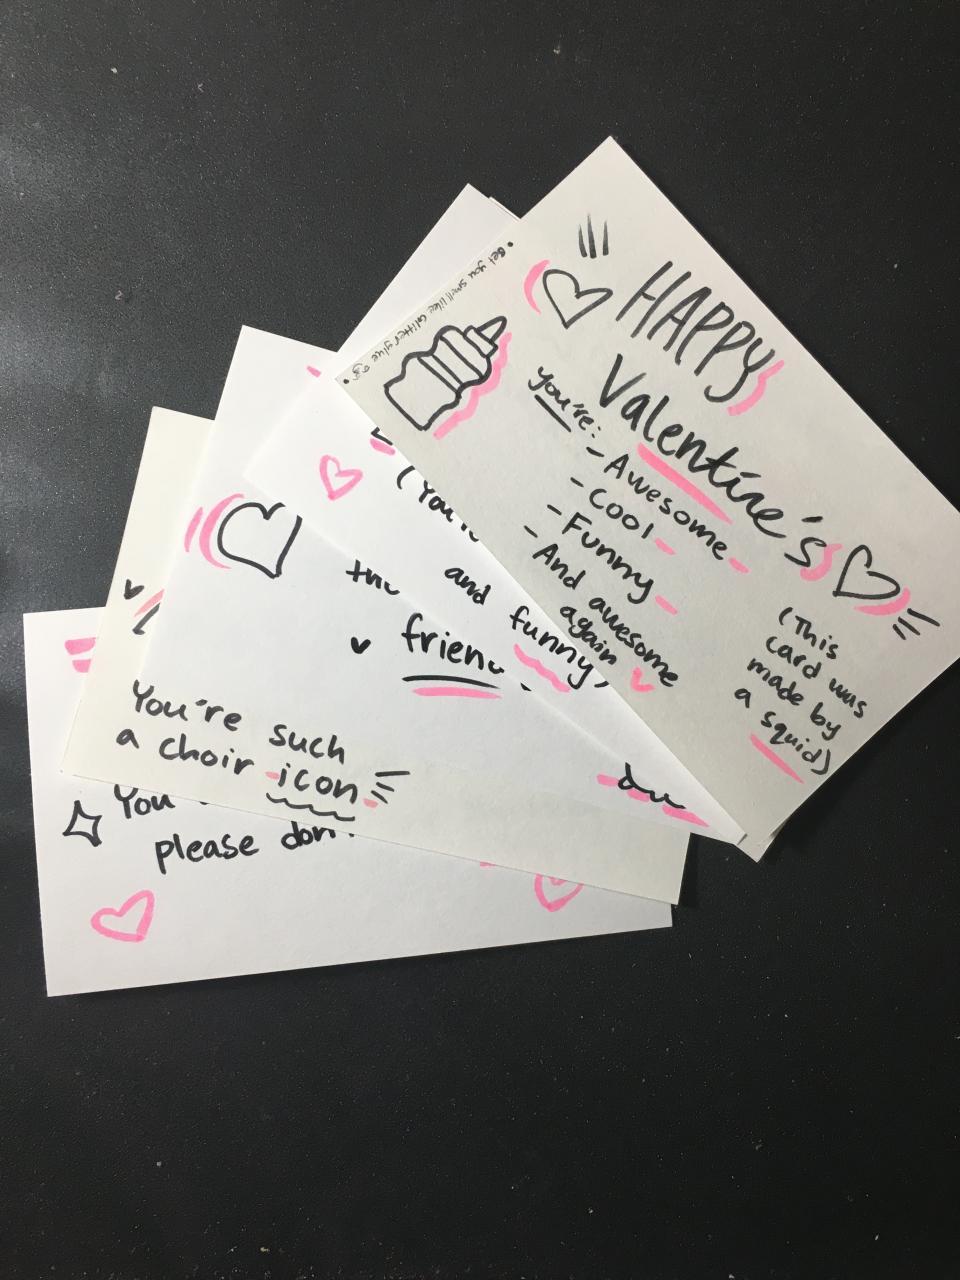 • Bet you smell like Glitter glue
HAPPY
Valentine's
you're:
- Awesome
- Cool
- Funny
- And awesome
again
(This
card was
made by
a squid)
and
funny)
friend
You're such
a choir icon
You
please don